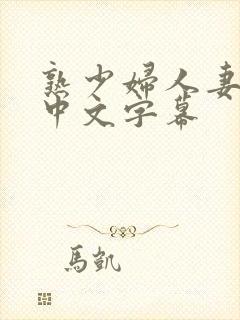 熟少婦人妻
中文字幕
馬凱